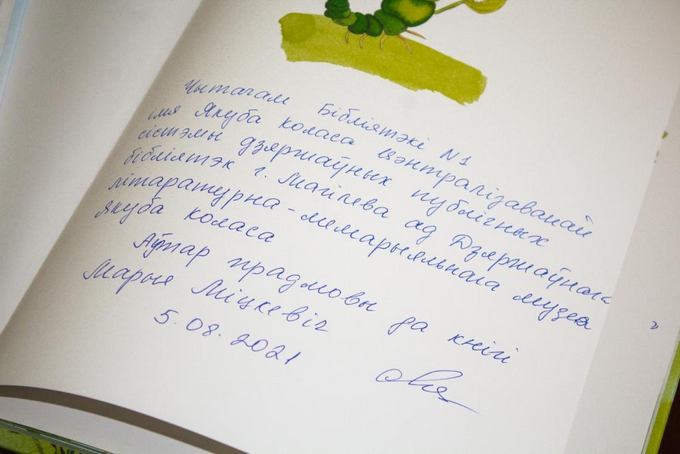 Чытачам Бібліятэкі N1
імя Якуба Коласа Цэнтралізаванай
сістэмы дзяржаўных публічных
бібліятэк г. Магілева ад Дзяржаўнага
літаратурна-мемарыяльнага музея
Якуба Коласа
Аўтар прадмовы да кнігі
Марыя Міцкевіч
5.08.2021